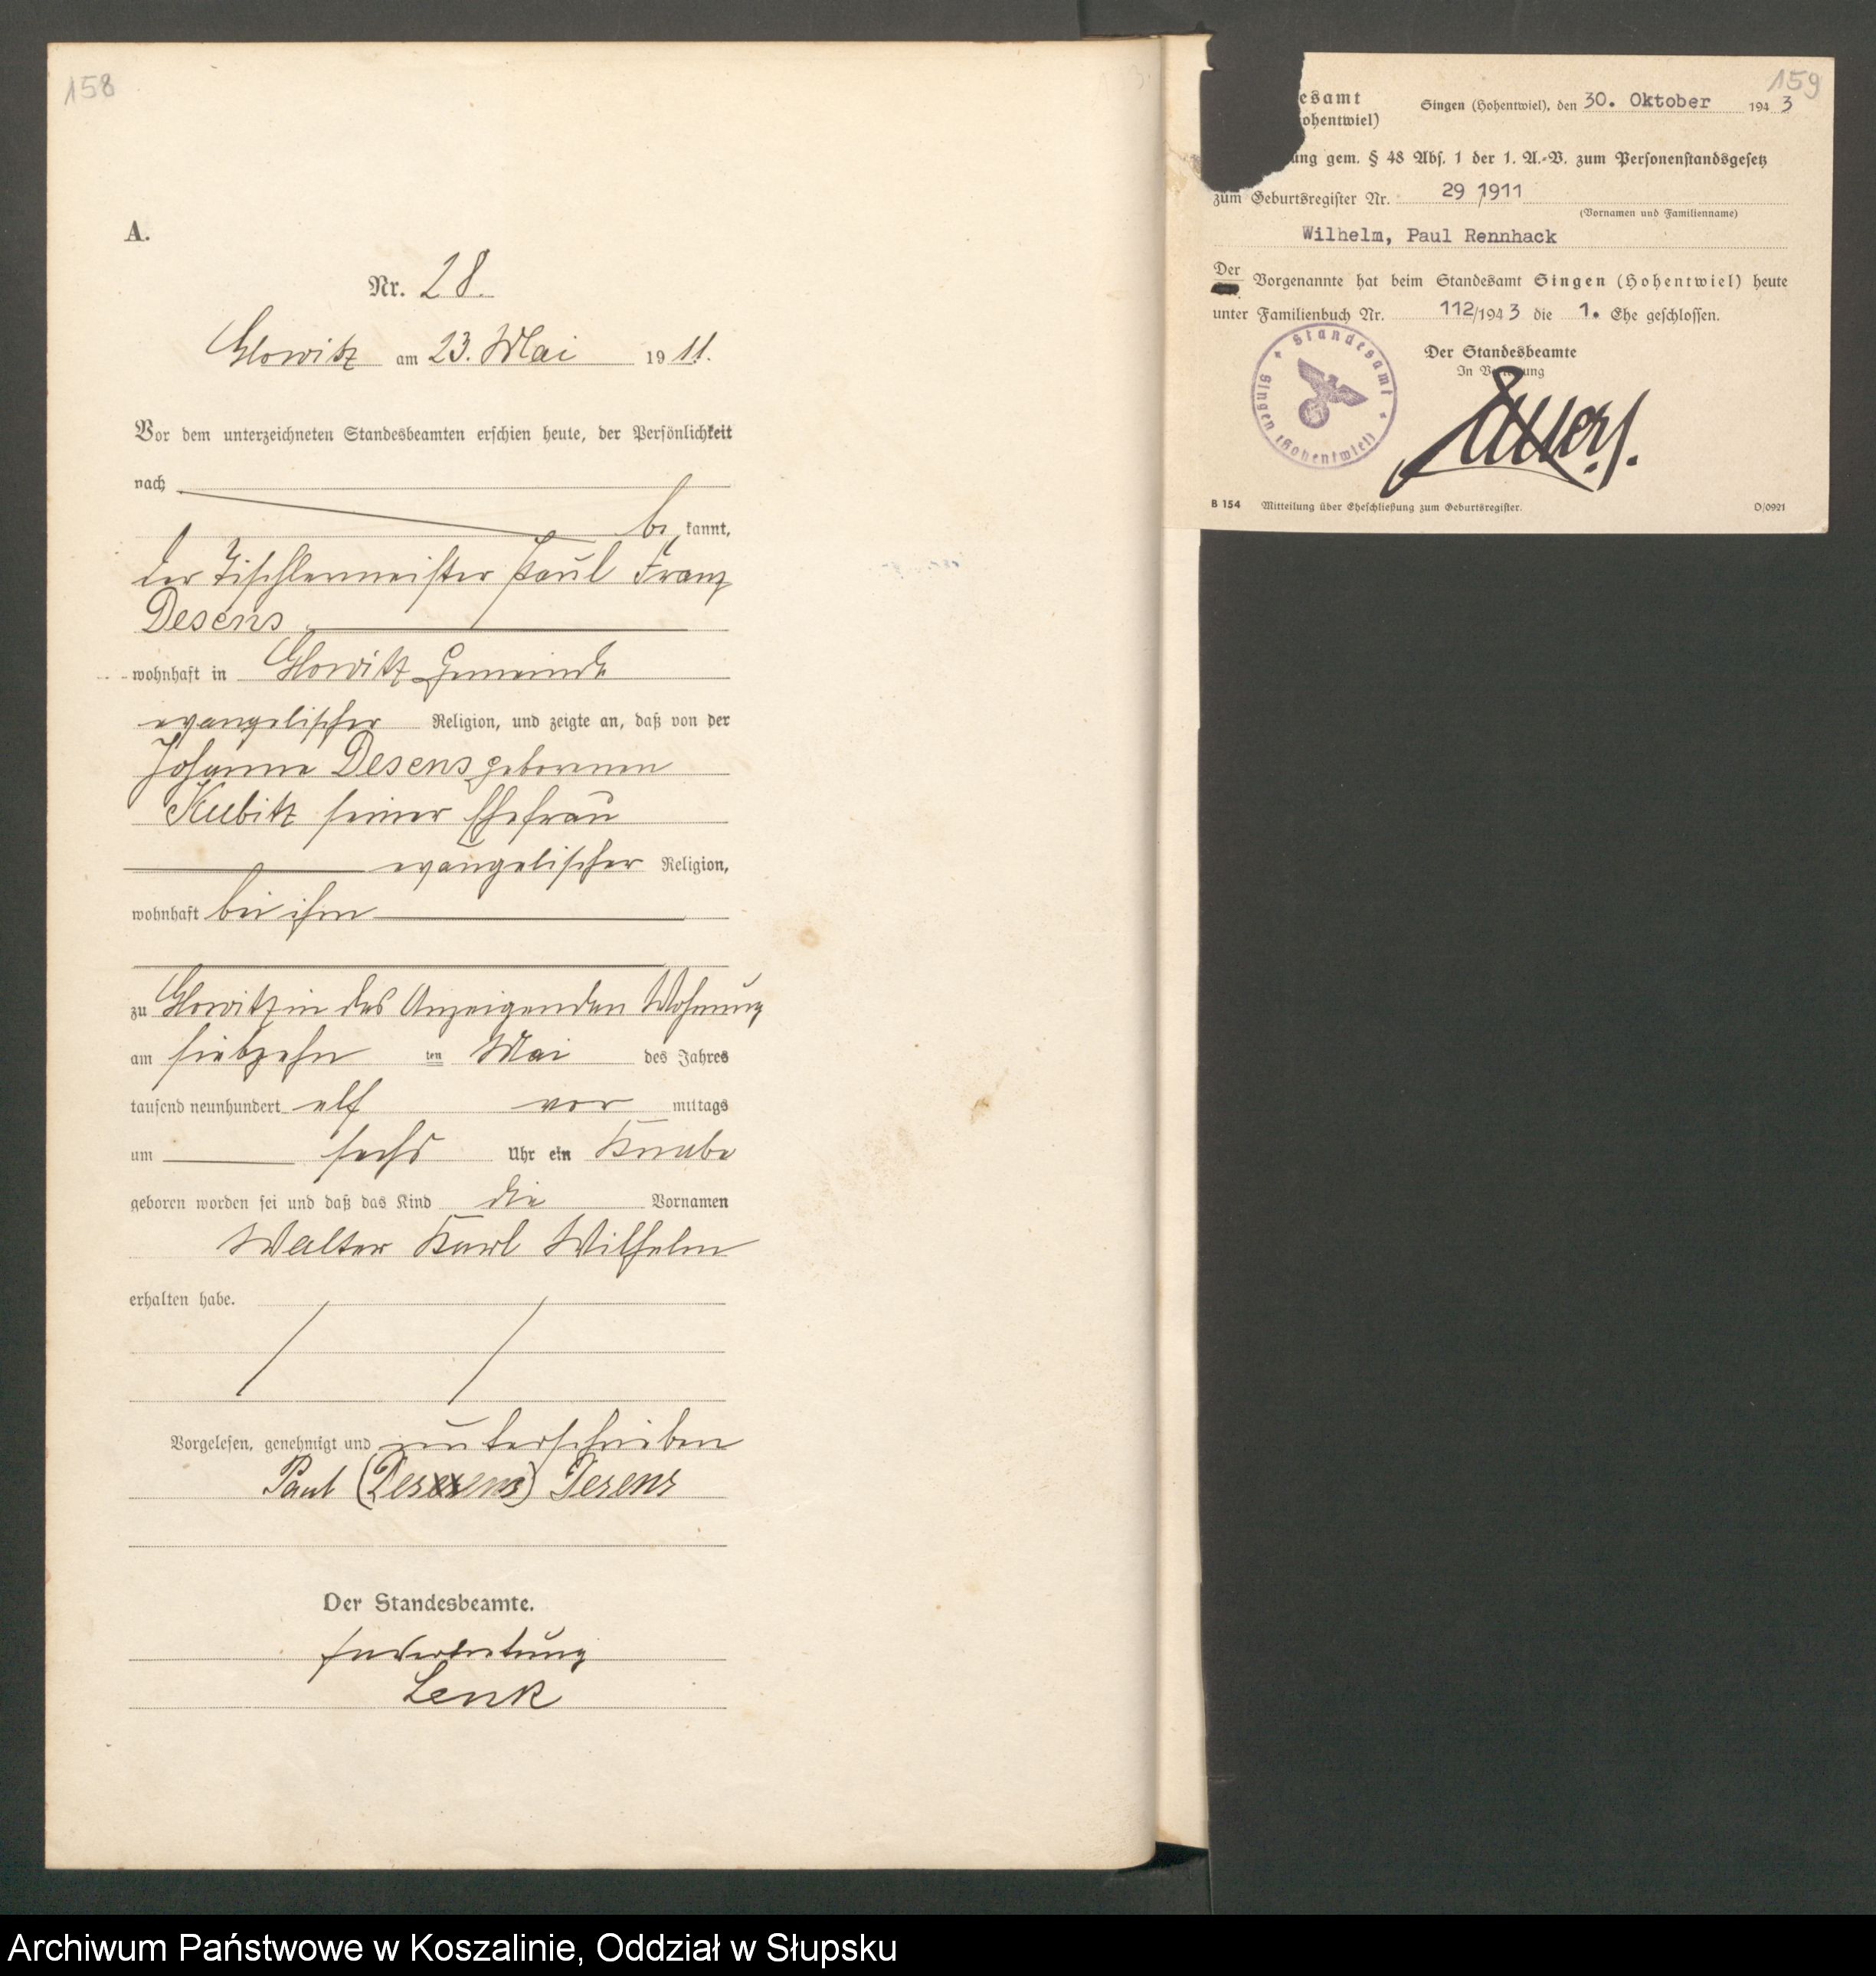 158
A.
Nr. 28.
Glowitz am 23. Mai 1911.
Vor dem unterzeichneten Standesbeamten erschien heute, der Persönlichkeit
nach
be kannt,
der Tischlermeister Paul Franz
Desens
wohnhaft in Glowitz Gemeinde
evangelischer Religion, und zeigte an, daß von der
Johanna Desens geborenen
Kubitz seiner Ehefrau
evangelischer Religion,
wohnhaft bei ihm
zu Glowitz in des Anzeigenden Wohnung
am siebzehn ten Mai des Jahres
tausend neunhundert elf vor mittags
um sechs Uhr ein Knabe
geboren worden sei und daß das Kind die Vornamen
Walter Karl Wilhelm
erhalten habe.
Vorgelesen, genehmigt und unterschrieben
Paul (Desens) Desens
Der Standesbeamte.
In Vertretung
Lenk
159
esamt Singen (Hohentwiel), den 30. Oktober 1943
ohentwiel)
ung gem. § 48 Abs. 1 der 1. A.-V. zum Personenstandsgesetz
zum Geburtsregister Nr. 29/1911
(Vornamen und Familienname)
Wilhelm, Paul Rennhack
Der Vorgenannte hat beim Standesamt Singen (Hohentwiel) heute
unter Familienbuch Nr. 112/1943 die 1. Ehe geschlossen.
Der Standesbeamte
In Vertretung
Standesamt
Singen (Hohentwiel)
B 154 Mitteilung über Eheschließung zum Geburtsregister. D/0921
Archiwum Państwowe w Koszalinie, Oddział w Słupsku